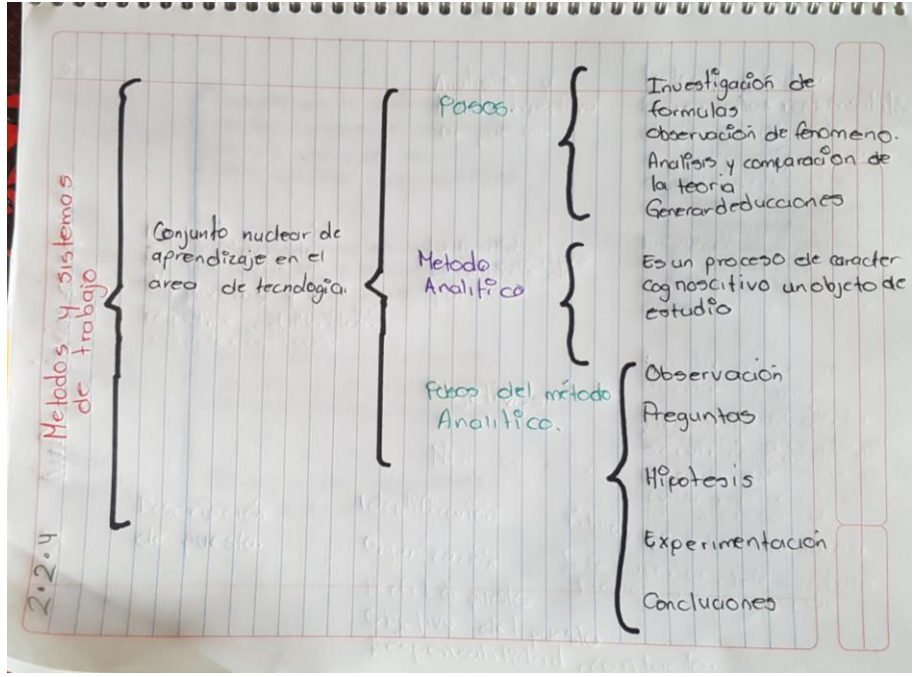 2.2.4
Metodos y sistemos
de trabajo
Conjunto nuclear de
aprendizaje en el
area de tecnologia.
Pasos.
Investigación de
formulas
observación de fenomeno.
Analisis y comparación de
la teoria
Generar deducciones
Metodo
Analitico
Es un proceso de caracter
cognoscitivo un objeto de
estudio
Pasos del método
Analitico.
Observación
Preguntas
Hipotesis
Experimentación
Concluciones